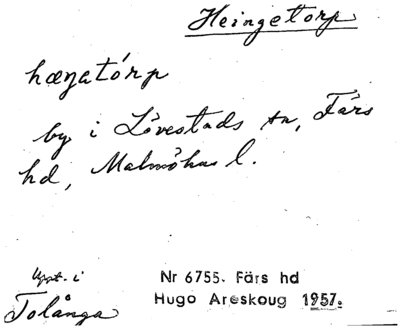 Heingetorp
hæŋatórp
by i Lövestads sn, Färs
hd, Malmöhus l.
Uppt. i
Tolånga
Nr 6755. Färs hd
Hugo Areskoug 1957.